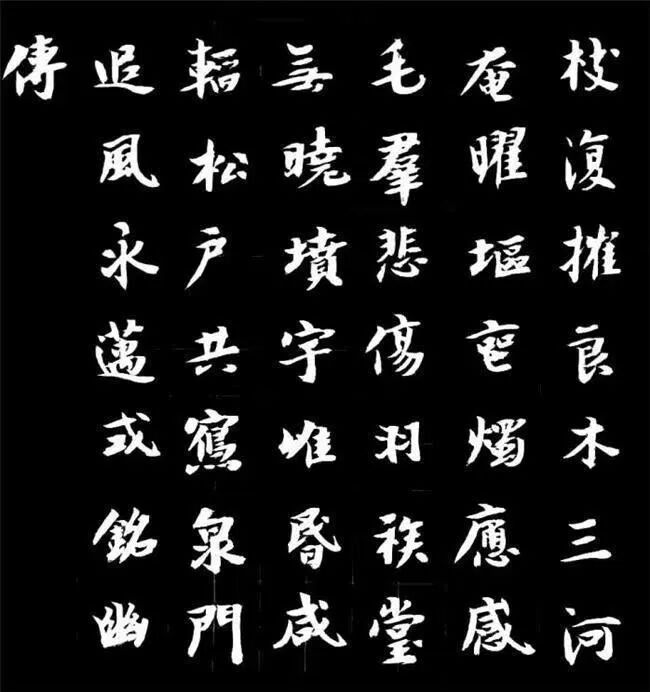 枝復摧良木三河
奄曜燭應感
毛羣悲傷羽族堂
無曉墳宇唯昏咸
韜松戶共寫泉門
追風永邁式銘幽
傳